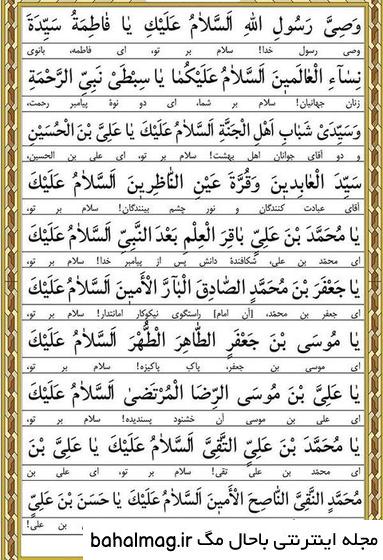 وَصِىَّ رَسُولِ اللهِ اَلسَّلاٰمُ عَلَيْكِ يٰا فٰاطِمَةُ سَيِّدَةَ
وصی رسول خدا! سلام بر تو، ای فاطمه، بانوی
نِسٰاءِ الْعٰالَمينَ اَلسَّلاٰمُ عَلَيْكُمٰا يٰا سِبْطَىْ نَبِىِّ الرَّحْمَةِ
زنان جهانیان! سلام بر شما، ای دو نوۀ پیامبر رحمت،
وَسَيِّدَىْ شَبٰابِ اَهْلِ الْجَنَّةِ اَلسَّلاٰمُ عَلَيْكَ يٰا عَلِىَّ بْنَ الْحُسَيْنِ
و دو آقای جوانان اهل بهشت! سلام بر تو، ای علی بن الحسین،
سَيِّدَ الْعٰابِدينَ وَقُرَّةَ عَيْنِ النّٰاظِرينَ اَلسَّلاٰمُ عَلَيْكَ
آقای عبادت کنندگان و نور چشم بینندگان! سلام بر تو،
يٰا مُحَمَّدَ بْنَ عَلِىٍّ بٰاقِرَ الْعِلْمِ بَعْدَ النَّبِىِّ اَلسَّلاٰمُ عَلَيْكَ
ای محمّد بن علی، شکافندۀ دانش پس از پیامبر خدا! سلام بر تو،
يٰا جَعْفَرَ بْنَ مُحَمَّدٍ الصّٰادِقَ الْبٰآرَّ الْأَمينَ اَلسَّلاٰمُ عَلَيْكَ
ای جعفر بن محمّد، [آن امام] راستگوی نیکوکار امانتدار! سلام بر تو،
يٰا مُوسَى بْنَ جَعْفَرٍ الطّٰاهِرَ الْطُّهْرَ اَلسَّلاٰمُ عَلَيْكَ
ای موسی بن جعفر، پاکِ پاکیزه! سلام بر تو،
يٰا عَلِىَّ بْنَ مُوسَى الرِّضَا الْمُرْتَضىٰ اَلسَّلاٰمُ عَلَيْكَ
ای علی بن موسی آن خشنود پسندیده! سلام بر تو،
يٰا مُحَمَّدَ بْنَ عَلِىٍّ التَّقِىَّ اَلسَّلاٰمُ عَلَيْكَ يٰا عَلِىَّ بْنَ
ای محمّد بن علی تقی! سلام بر تو، ای علی بن
مُحَمَّدٍ النَّقِىَّ النّٰاصِحَ الْأَمينَ اَلسَّلاٰمُ عَلَيْكَ يٰا حَسَنَ بْنَ عَلِىٍّ
بن علی!
مجله اینترنتی باحال مگ bahalmag.ir